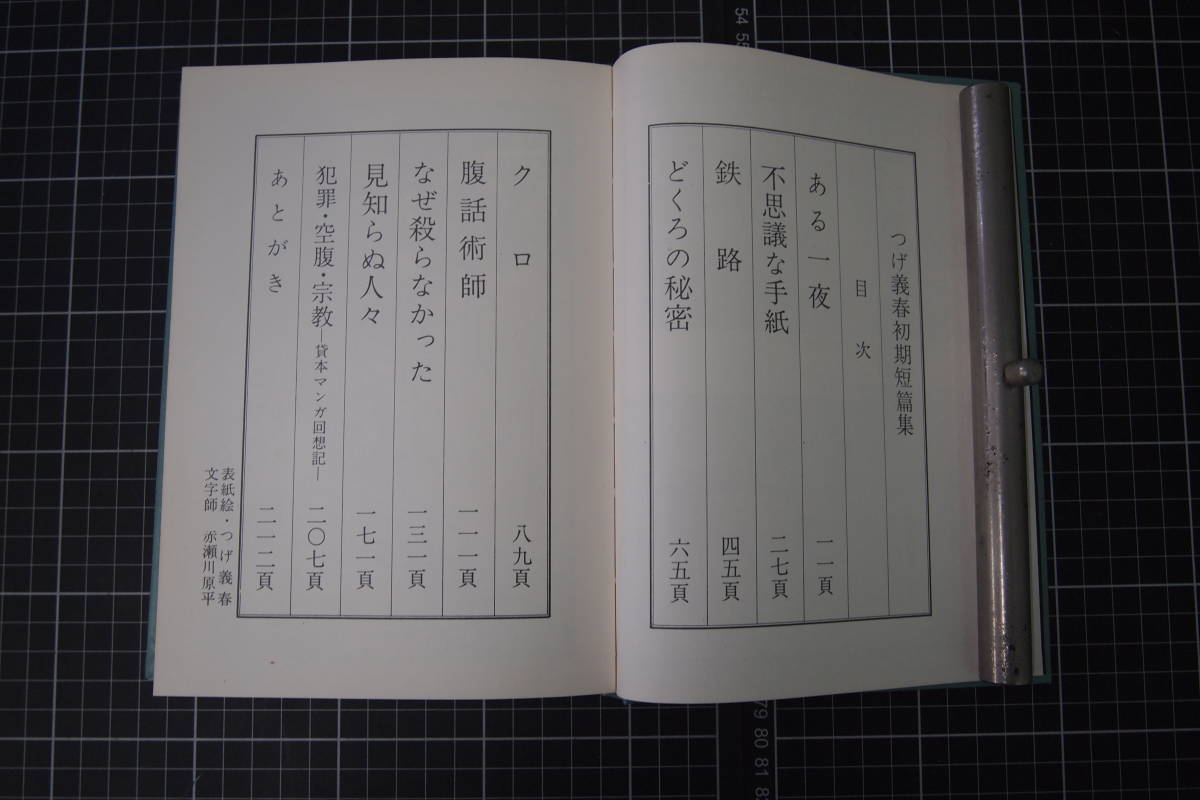 つげ義春初期短篇集
目次
ある一夜 一一頁
不思議な手紙 二七頁
鉄路 四五頁
どくろの秘密 六五頁
クロ 八九頁
腹話術師 一一一頁
なぜ殺らなかった 一三一頁
見知らぬ人々 一七一頁
犯罪・空腹・宗教 貸本マンガ回想記― 二〇七頁
あとがき 二一二頁
表紙絵・つげ義春
文字師 赤瀬川原平
54 55
79 80 81 82